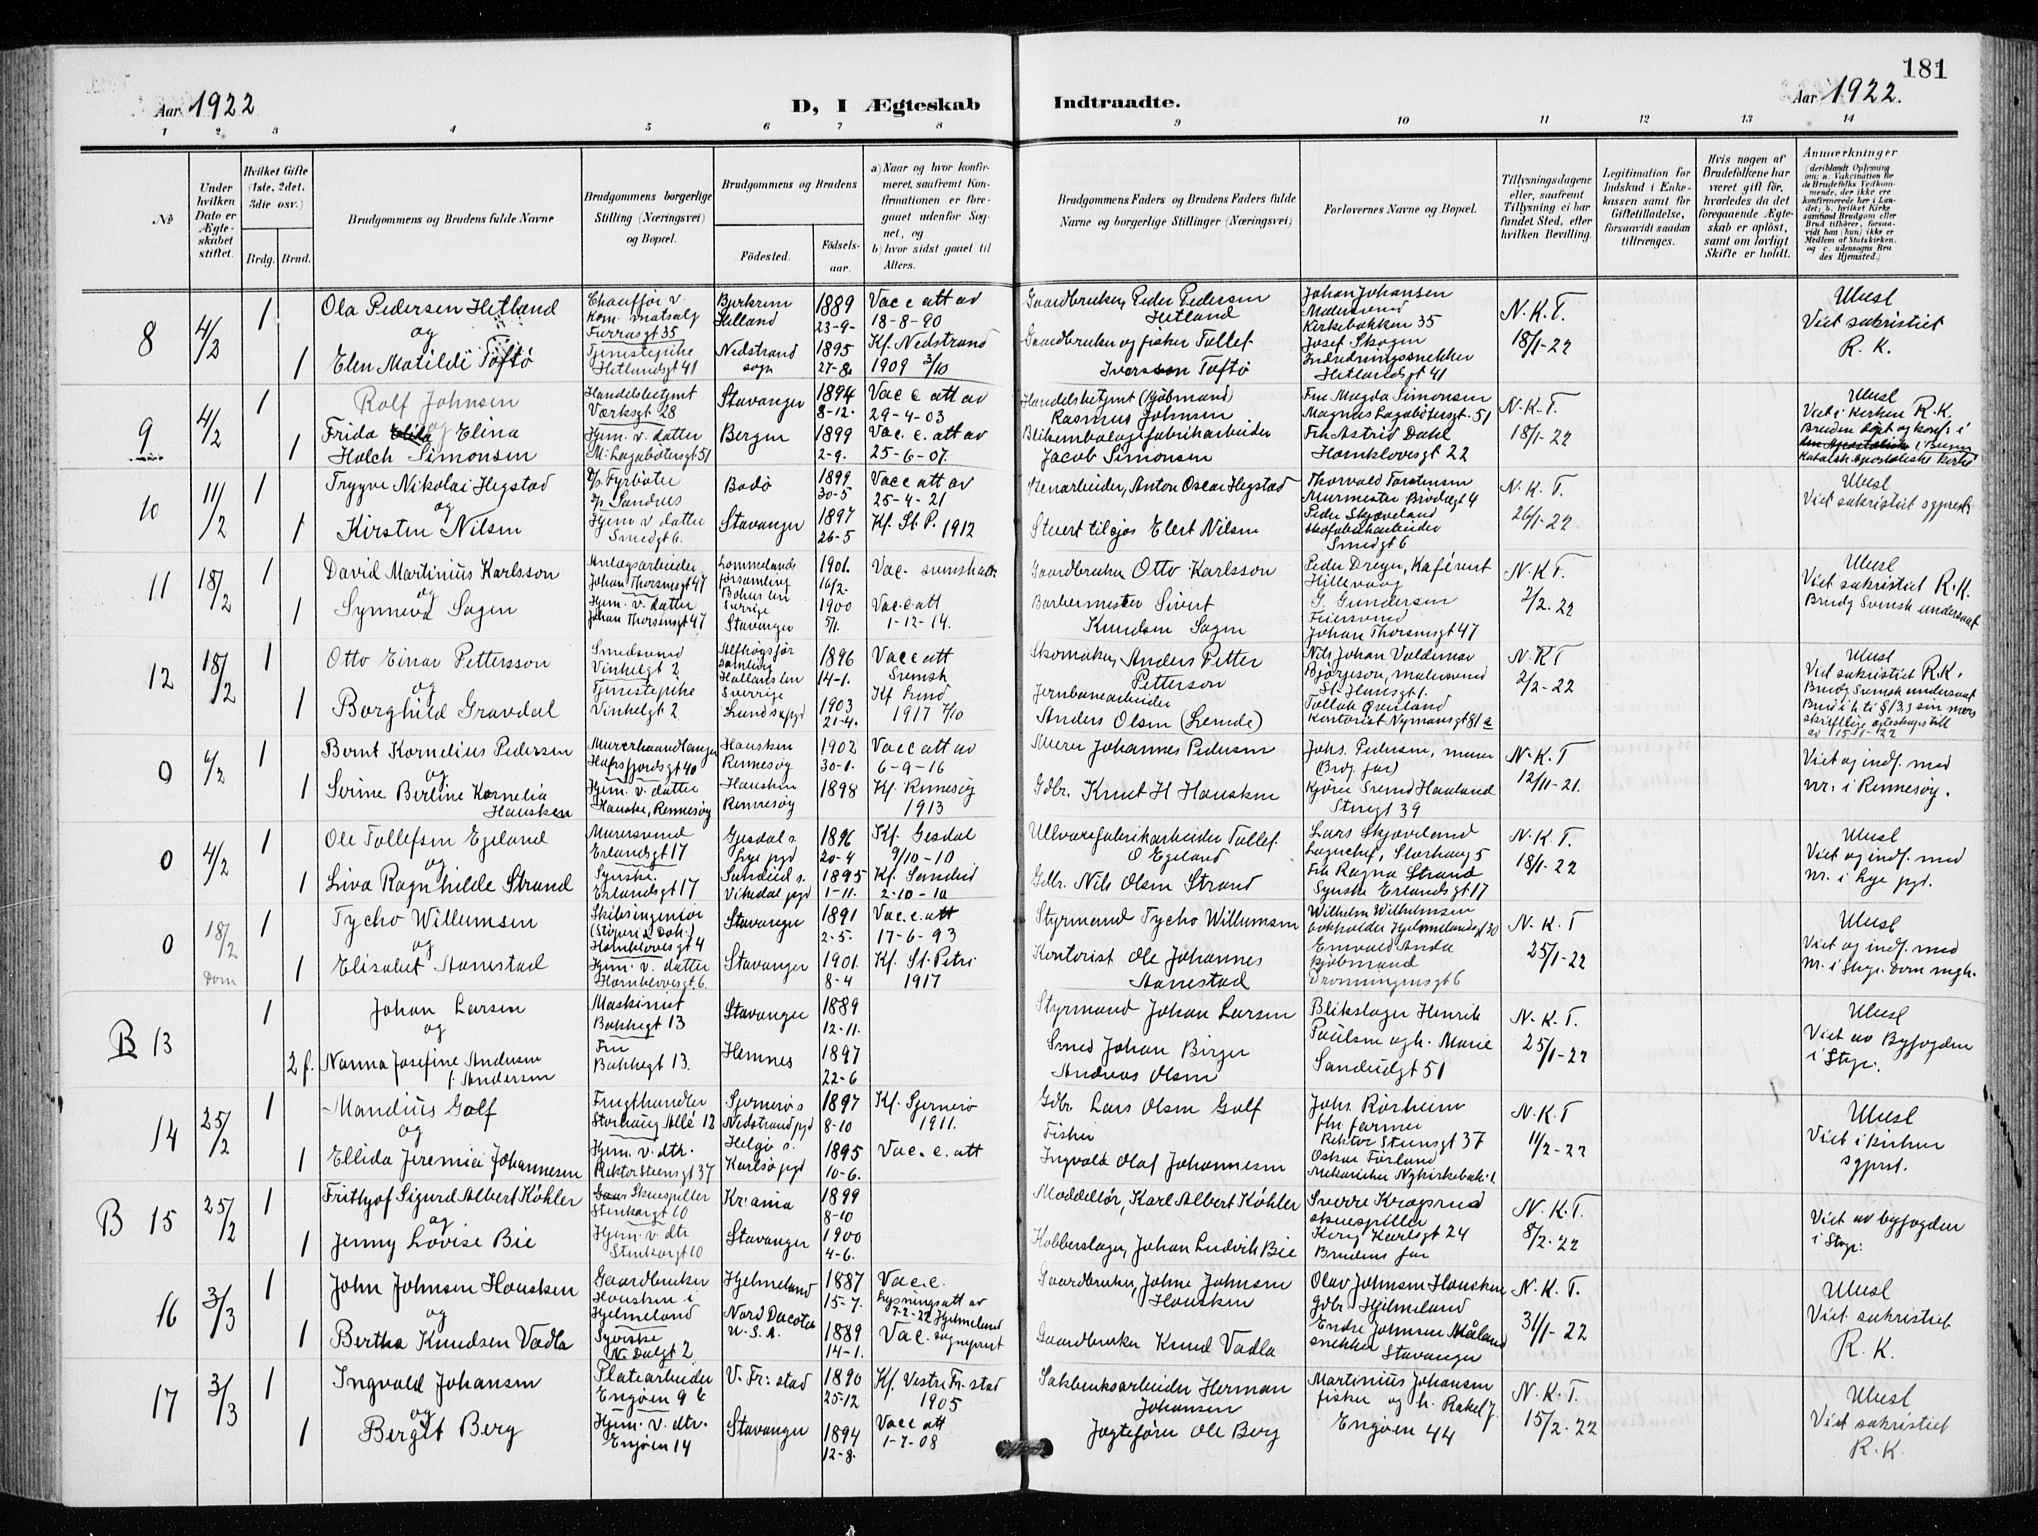 181
Aar 1922
D, I Ægteskab
Indtraadte.
Aar 1922.
1 2 3 4 5 6 7 8 9 10 11 12 13 14
№
Under hvilken Dato er Ægteskabet stiftet.
Hvilket Gifte (1ste, 2det, 3die osv.)
Brdg. Brud.
Brudgommens og Brudens fulde Navne
Brudgommens borgerlige Stilling (Næringsvei) og Bopæl.
Brudgommens og Brudens
Födested.
Födselsaar.
a) Naar og hvor konfirmeret, saafremt Konfirmationen er foregaaet udenfor Sognet, og
b) hvor sidst gaaet til Alters.
Brudgommens Faders og Brudens Faders fulde Navne og borgerlige Stillinger (Næringsvei)
Forlovernes Navne og Bopæl.
Tillysningsdagene eller, saafremt Tillysning ei har fundet Sted, efter hvilken Bevilling.
Legitimation for Indskud i Enkekassen samt for Giftetilladelse, forsaavidt saadan tiltrænges.
Hvis nogen af Brudefolkene har været gift för, hvorledes da det foregaaende Ægteskab er oplöst, samt om lovligt Skifte er holdt.
Anmærkninger
(deriblandt Oplysning om: a. Vakcination for de Brudefolks Vedkommende, der ikke ere konfirmerede her i Landet; b. hvilket Kirkesamfund Brudgom eller Brud tilhörer, forsaavidt han (hun) ikke er Medlem af Statskirken, og c. udensogns Brudes Hjemsted.)
8 4/2 1 Ola Pedersen Hetland Chauffør v. Kom. matsalg Furrasgt 35 Bjerkreim Hetland 1889 23-9- Vacc att av 18-8-90 Gaardbruker Peder Pedersen Hetland Johan Johansen Malersvend Kirkebakken 35 N.K.T. 18/1-22 Ubesl Viet sakristiet R.K.
og
1 Elen Matilde Toftø Tjenestepike Hetlandsgt 41 Nedstrand sogn 1895 27-8- Kf. Nedstrand 1909 3/10 Gaardbruker og fisker Tollef Iversen Toftø Josef Skogen Indredningssnekker Hetlandsgt 41
9 4/2 1 Rolf Johnsen Handelsbetjent Værksgt 28 Stavanger 1894 8-12. Vacc att av 29-4-03 Handelsbetjent (Kjøbmand) Rasmus Johnsen Frk Magda Simonsen Magnus Lagabøtersgt. 51 N.K.T. 18/1-22 Ubesl Viet i Kirken R.K.
og
1 Frida Elina Holck Simonsen Hjem. v. datter M. Lagabøtersgt 51 Bergen 1899 2-9. Vac. c. att av 25-6-07. Blikemballagefabrikarbeider Jacob Simonsen Frk Astrid Dahl Hornklovesgt 22 Bruden døpt og konf. i Katolsk Apostoliske Kirke
10 11/2 1 Trygve Nikolai Hegstad Fyrbøter Sandnes Bodø 1899 30-5 Vacc att av 25-4-21 Stenarbeider, Anton Oscar Hegstad Thorvald Torstensen Murmester Brødregt 4 N.K.T. 26/1-22 Ubesl Viet sakristiet sgprest.
og
1 Kirsten Nilsen Hjem v datter Smedgt 6. Stavanger 1897 26-5 Kf. St. P. 1912 Stuert tilsjøs Elert Nilsen Peder Skjæveland skofabrikarbeider Smedgt 6
11 18/2 1 David Martinius Karlsson Anlægsarbeider Johan Thorsensgt 47 Lommelands församling Bohus len Sverrige 1901. 16/2. Vac. svensk att. Gaardbruker Otto Karlsson Peder Dreyer, Kafévert Hillevaag N.K.T. 2/2-22 Ubesl Viet sakristiet R.K. Brudg Svensk undersaat
og
1 Synneva Sagen Hjem. v. datter Johan Thorsensgt 47 Stavanger 1900 5/1. Vac.c.att 1-12-14. Barbermester Sivert Knudsen Sagen G. Gundersen Feiersvend Johan Thorsensgt 47
12 18/2 1 Otto Einar Pettersson Smedsvend Vinkelgt 2 Hallands len Sverrige 1896 14-1. Vacc att Svensk Skomaker, Anders Petter Petterson Nils Johan Valdemar Björjeson, malersvend St. Hansgt 1. N.K.T 2/2-22 Ubesl Viet sakristiet R.K. Brudg Svensk undersaat
og
1 Borghild Gravdal Tjenestepike Vinkelgt 2 Lunds spgd 1903 21-4. Kf Lund 1917 7/10 Jernbanearbeider Anders Olsen (Lemde) Tollak Qveiland Kontorist Nymansgt 81a
0 4/2 1 Bernt Kornelius Pedersen Murerhaandlanger Hafrsfjordsgt 40 Hausken Rennesøy 1902 30-1. Vacc att av 6-9-16 Murer Johannes Pedersen Johs. Pedersen, murer (Brdg. far) N.K.T 12/11-21. Viet og indf. med nr. i Rennesøy.
og
1 Serine Berline Kornelia Hausken Hjem. v. datter Hauske, Rennesøy Hausken Rennesøy 1898 Kf. Rennesøy 1913 Gdbr. Knut H Hausken Kjøre Svend Haaland Stengt 39
0 4/2 1 Ole Tollefsen Egeland Murersvend Erlandsgt 17 Gjesdal s Lye pgd 1896 20-4 Kf. Gjesdal 9/10-10 Ulvarefabrikarbeider Tollef O Egeland Lars Skjæveland Lagerchef, Storhaug 5 N.K.T. 18/1-22 Ubesl Viet og indf. med nr. i Lye pgd.
og
1 Liva Ragnhilde Strand Syerske Erlandsgt 17 Sandeid s. Vikedal pgd 1895 1-11. Kf. Sandeid 2-10-10 Gdbr. Nils Olsen Strand Frk Ragna Strand Syerske Erlandsgt 17
0 18/2 Dom 1 Tycho Willumsen Skibsingeniør (Støperi & Dok) Hornklovesgt 4 Stavanger 1891 2-5. Vac.c.att 17-6-93 Styrmand Tycho Willumsen Wilhelm Wilhelmsen bokholder Hjelmelandsgt 20 N.K.T 25/1-22 Ubesl Viet og indf. med nr. i Stvgr. Dom mgh.
og
1 Elisabet Aanestad Hjem. v. datter Hornklovesgt. 6. Stavanger 1901. 8-4 Kf. St. Petri 1917 Kontorist Ole Johannes Aanestad Enevald Anda kjøbmand Dronningensgt 6
B 13 1 Johan Larsen Maskinist Bakkegt 13 Stavanger 1889 12-11. Styrmand Johan Larsen Blikslager Henrik Paulsen og h. Marie Sandeidgt 51 N.K.T. 25/1-22 Ubesl Viet av Byfogden i Stvgr.
og
2 f. Nanna Josefine Andersen f. Andersen Fru Bakkegt 13. Hemnes 1897 22-6 Smed Johan Birger Andreas Olsen
14 25/2 1 Mandius Golf Frugthandler Storhaug Allé 12 Sjernerø s Nedstrand pgd 1897 8-10 Kf. Sjernerø 1911. Gdbr Lars Olsen Golf Johs. Rörheim fhv. farmer Rektor Steensgt 37 N.K.T 11/2-22 Ubesl Viet i Kirken sgprst.
og
1 Ellida Jeremia Johannesen Hjem. v. dtr. Rektor Steensgt 37 Helgø s. Karlsø pgd 1895 10-6. Vac. c. att Fisker Ingvald Olaf Johannesen Oskar Förland Mekaniker Nykirkebak. 1
B 15 25/2 1 Frithjof Sigurd Albert Köhler Skuespiller Stenkargt 10 Kr:ania 1899 8-10 Moddellør, Karl Albert Köhler Sverre Krogsrud skuespiller Kong Karlsgt 24 N.K.T. 8/2-22 Viet av byfogden i Stvgr.
og
1 Jenny Lovise Bie Hjem. v. dtr Stenkargt 10 Stavanger 1900 4-6. Kobberslager, Johan Ludvik Bie Brudens far
16 3/3 1 John Johnsen Hausken Gaardbruker Hausken i Hjelmeland Hjelmeland 1887 15-7. Vac.c. Lysningsatt av 7-2-22 Hjelmeland sogneprest Gaardbruker, Johne Johnsen Hausken Olav Johnsen Hausken Gdbr. Hjelmeland N.K.T. 31/1-22 Ubesl Viet sakristiet R.K.
og
1 Bertha Knudsen Vadla Syerske N. Dalgt 2 Nord Dacota U.S.A. 1889 14-1. Vac. Gaardbruker Knud Vadla Endre Johnsen Måland snekker Stavanger
17 3/3 1 Ingvald Johansen Platearbeider Engøen 9 b V. Fr:stad 1890 25-12 Kf. Vestre Fr.stad 1905 Sakbruksarbeider Herman Johansen Martinius Johansen fisker og h. Rakel J. Engøen 44 N.K.T. 15/2-22 Ubesl Viet sakristiet R.K.
og
1 Bergit Berg Hjem. v. dtr. Engøen 14 Stavanger 1894 12-8. Vacc att 1-7-08 Jægtefører Ole Berg